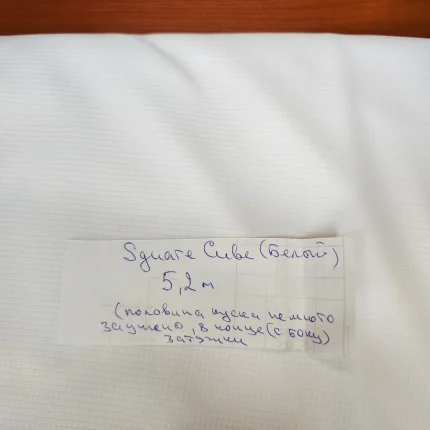 Square Cube (Белый)
5,2 м
(половина куска немного
заужено, в конце (с боку)
затяжки